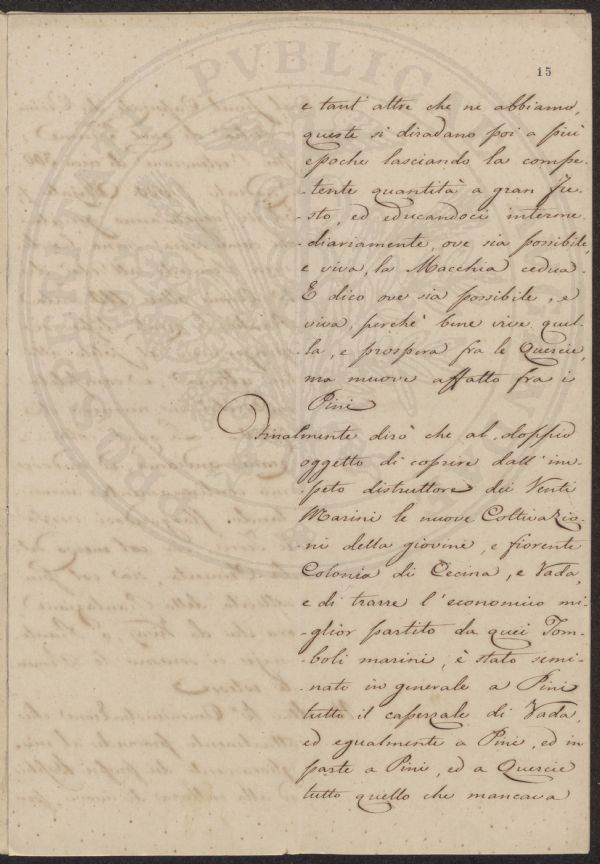 15
e tant' altre che ne abbiamo,
queste si diradano poi a più
epoche lasciando la compe-
-tente quantità a gran fu-
-sto, ed educandoci interme-
-diariamente, ove sia possibile,
e viva, la Macchia cedua.
E dico ove sia possibile, e
viva, perchè bene vive quel-
la, e prospera fra le Quercie,
ma muore affatto fra i
Pini
Finalmente dirò che al doppio
oggetto di coprire dall' im-
-peto distruttore dei Venti
Marini le nuove Coltivazio-
-ni della giovine, e fiorente
Colonia di Cecina, e Vada,
e di trarre l' economico mi-
-glior partito da quei Tom-
-boli marini, è stato semi-
-nato in generale a Pini
tutto il capezzale di Vada,
ed egualmente a Pini, ed in
parte a Pini, ed a Quercie
tutto quello che mancava